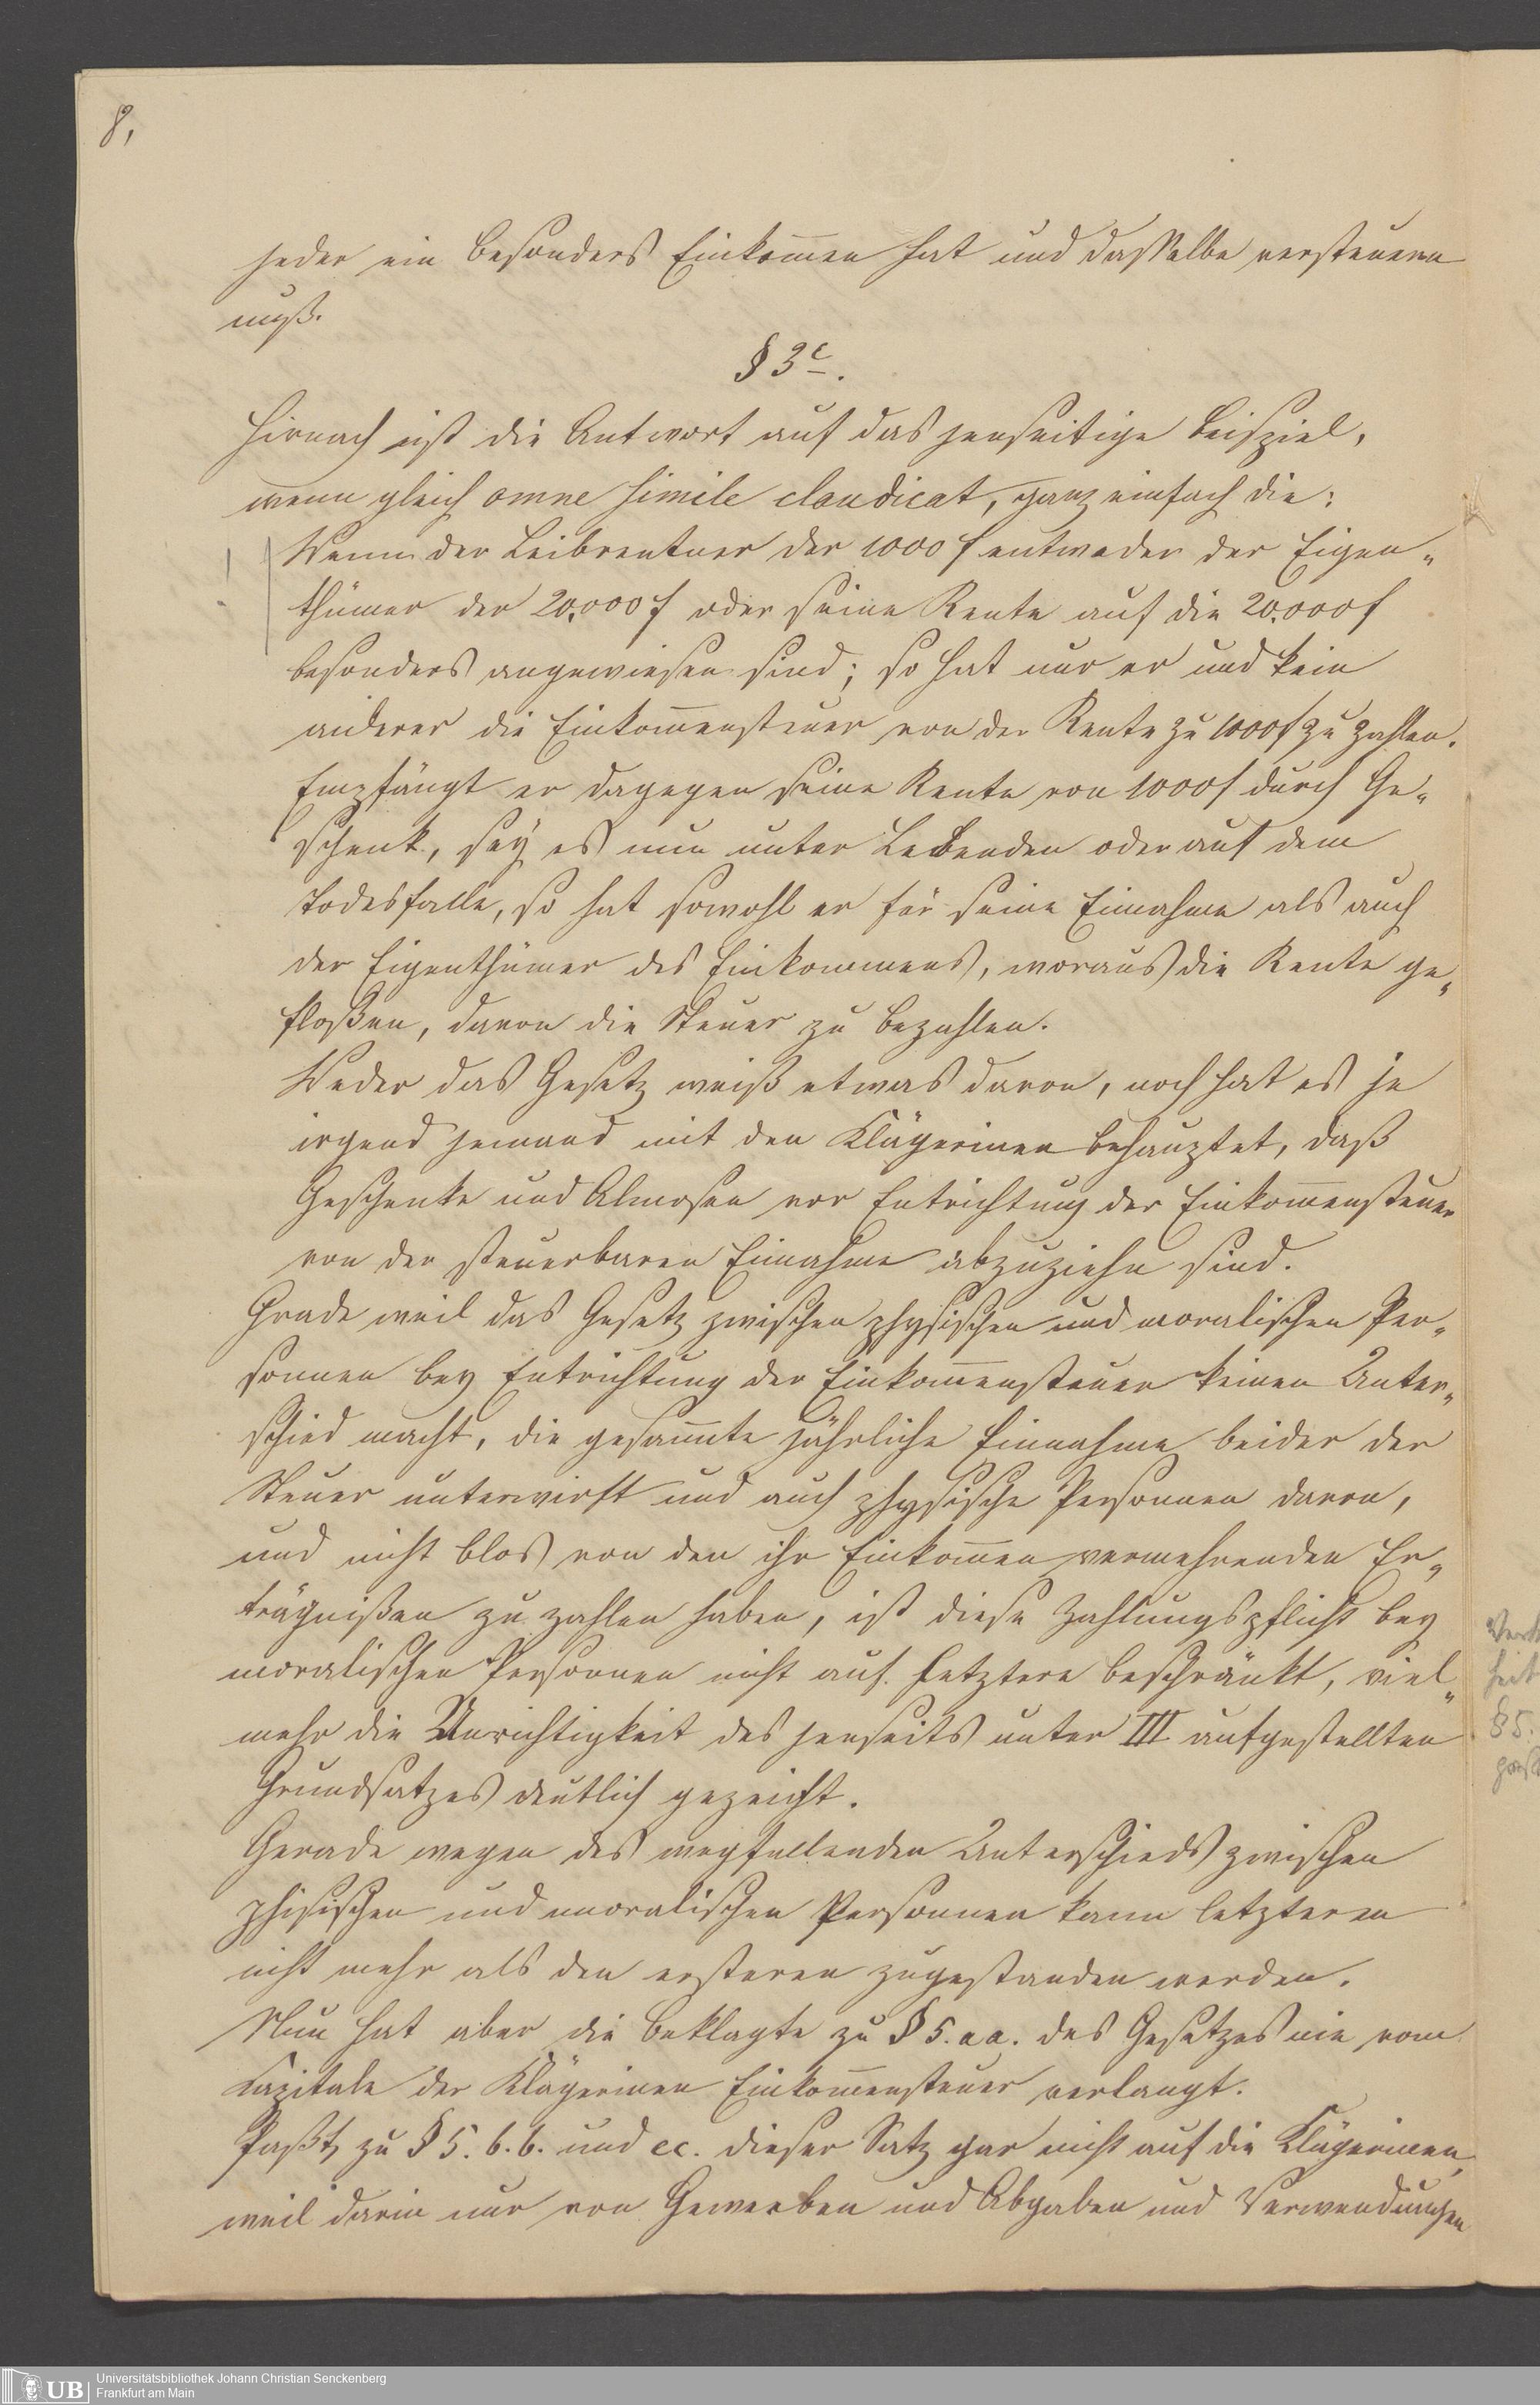 8,
jeder ein besonders Einkom̅en hat und dasselbe versteuern
muß.
§ 3c.
Hirnach ist die Antwort auf das jenseitige Beispiel,
wenn gleich omne simile claudicat, ganz einfach die:
Wenn der Leibrentner der 1000 f entweder der Eigen„
thümer der 20,000 f oder seine Rente auf die 20,000 f
besonders angewiesen sind; so hat nur er und kein
anderer die Einkom̅ensteuer von der Rente zu 1000 f zu zahlen.
Empfängt er dagegen seine Rente von 1000 f durch Ge„
schenk, seÿ es nun unter Lebenden oder auf dem
Todesfalle, so hat sowohl er für seine Einnahme als auch
der Eigenthümer des Einkommens, woraus die Rente ge„
floßen, davon die Steuer zu bezahlen.
Weder das Gesetz weiß etwas davon, noch hat es je
irgend jemand mit den Klägerinen behauptet, daß
Geschenke und Almosen vor Entrichtung der Einkom̅ensteuer
von der steuerbaren Einnahme abzuziehn sind.
Grade weil das Gesetz zwischen physischen und moralischen Per„
sonnen bey Entrichtung der Einkom̅ensteuer keinen Unter„
schied macht, die gesam̅te jährliche Einnahme beider der
Steuer unterwirft und auch physische Personnen davon,
und nicht blos von den ihr Einkom̅en vermehrenden Er„
trägnißen zu zahlen haben, ist diese Zahlungspflicht bey
moralischen Personnen nicht auf Letztere beschränkt, viel„
mehr die Unrichtigkeit des jenseits unter III aufgestellten
Grundsatzes deutlich gezeicht.
Gerade wegen des wegfallenden Unterschieds zwischen
phisischen und moralischen Personnen kann letzteren
nicht mehr als den ersteren zugestanden werden.
Nun hat aber die Beklagte zu § 5. aa. des Gesetzes nie vom
Capitale der Klägerinen Einkom̅ensteuer verlangt.
Paßt zu § 5. b.b. und cc. dieser Satz gar nicht auf die Klägerinen,
weil darin nur von Gewerben und Abgaben und Verwendungen
§ 5.
Universitätsbibliothek Johann Christian Senckenberg
Frankfurt am Main
UB